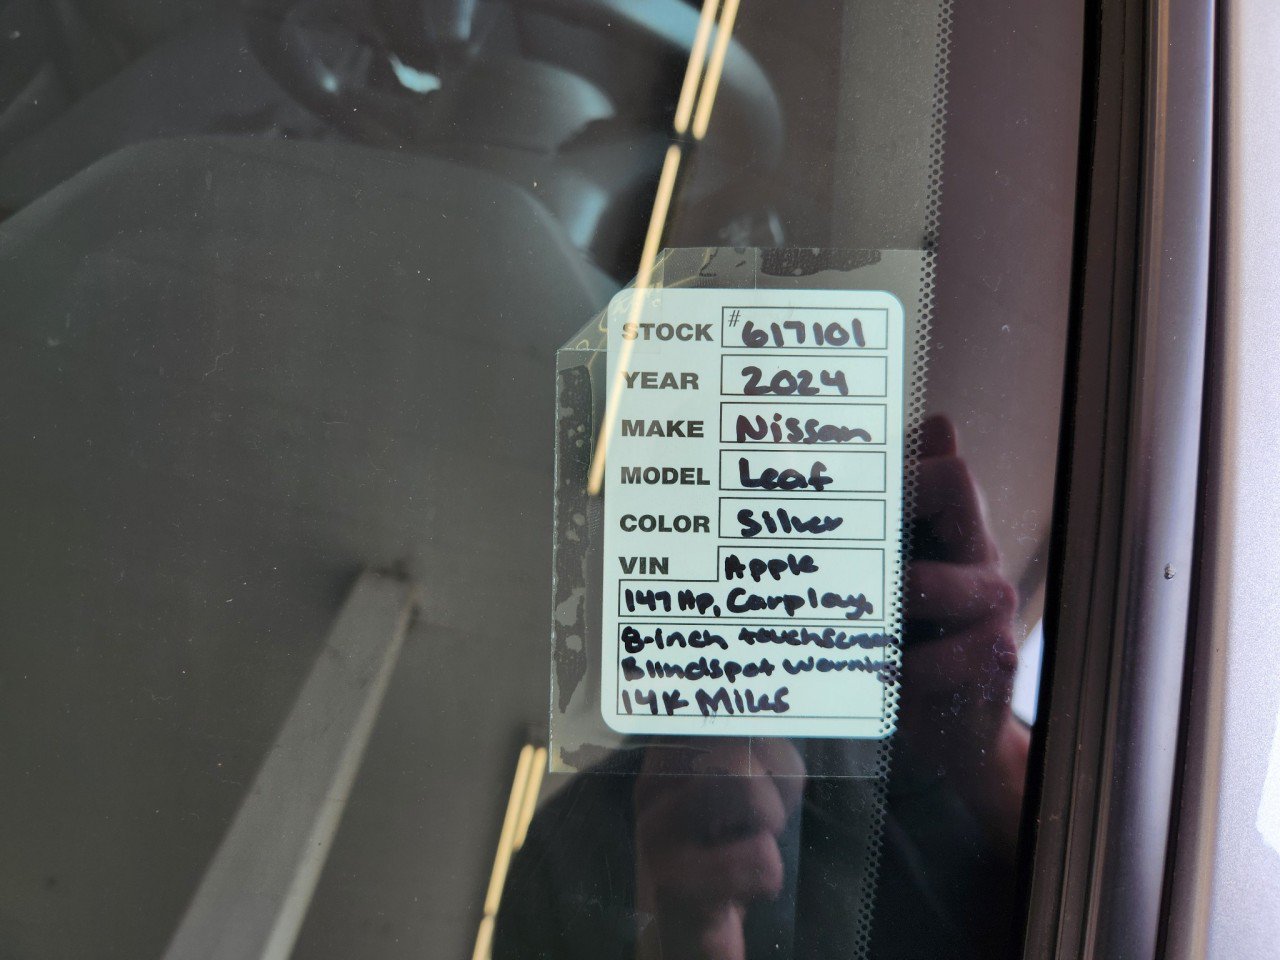 STOCK #617101
YEAR 2024
MAKE Nissan
MODEL Leaf
COLOR Silver
VIN Apple
147 Hp, Carplay,
8-Inch touchscreen
Blindspot Warning
14K Miles